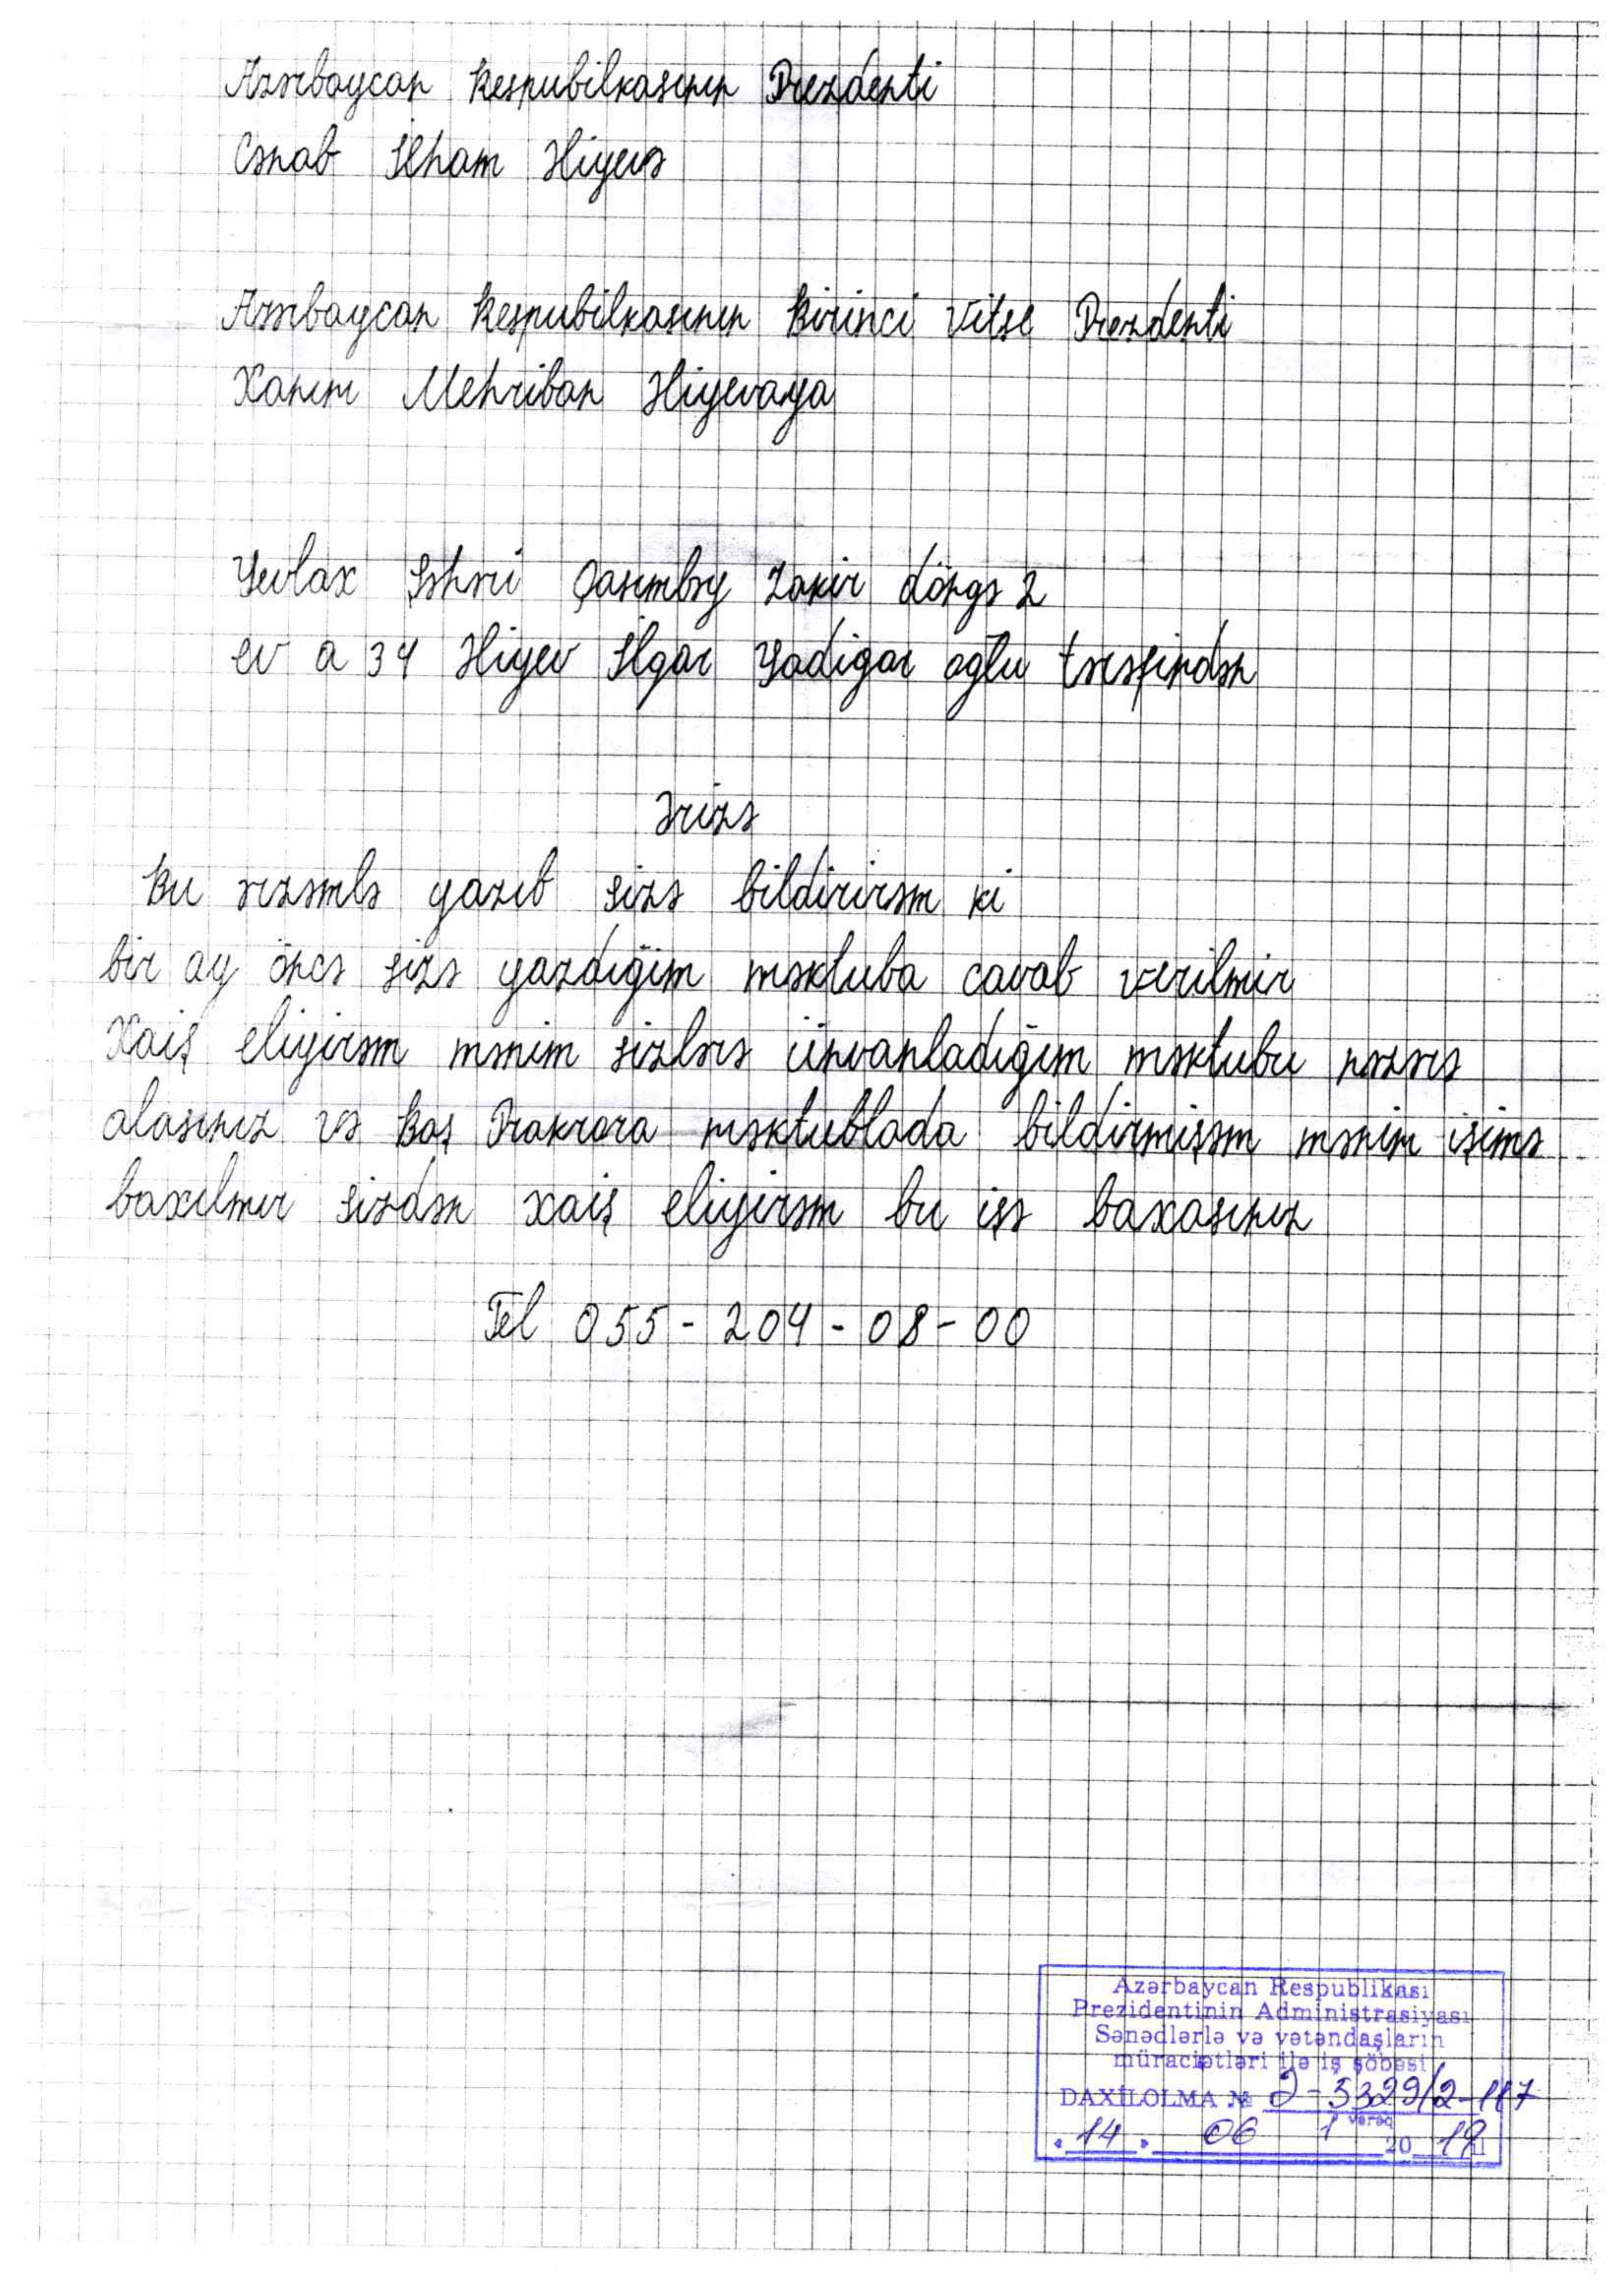 Azərbaycan Respubilkasının Prezdenti
Cənab İlham Əliyevə
Azərbaycan Respubilkasının Birinci Vitse Prezdenti
Xanım Mehriban Əliyevaya
Yevlax Şəhəri Qasımbəy Zakir döngə 2
ev a 34 Əliyev İlgar Yadigar oğlu tərəfindən
Ərizə
Bu ərizəmlə yazıb sizə bildirirəm ki
bir ay öncə sizə yazdığım məktuba cavab verilmir
Xaiş eliyirəm mənim sizlərə ünvanladığım məktubu nəzərə
alasınız və Baş Prakrora məktublada bildirmişəm mənim işimə
baxılmır sizdən xaiş eliyirəm bu işə baxasınız
Tel 055-204-08-00
Azərbaycan Respublikası
Prezidentinin Administrasiyası
Sənədlərlə və vətəndaşların
müraciətləri ilə iş şöbəsi
DAXİLOLMA № Ə-5329/2-117
1 vərəq
"14" 06 2019 il